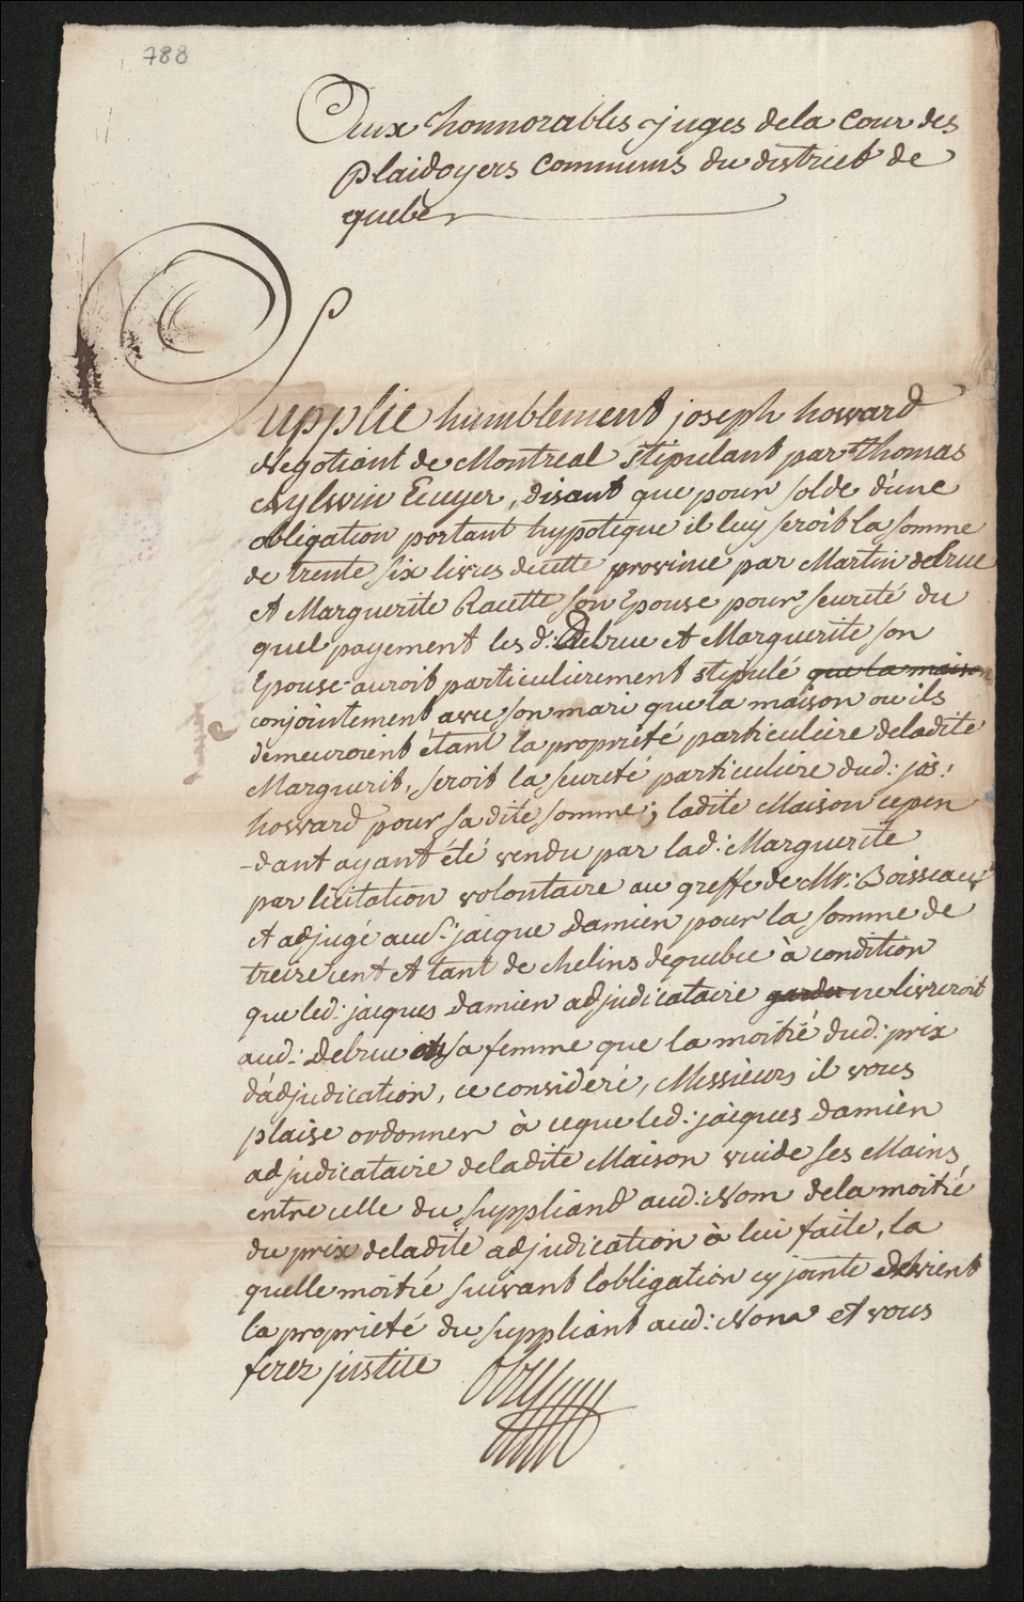 788
Aux honnorables juges dela Cour des
plaidoyers Communs du district de
quebec
Supplie humblement joseph howard
Negotiant de Montreal stipulant par thomas
Aylwin Ecuyer, disant que pour solde d'une
obligation portant hypoteque il luy seroit la somme
de trente six livres decette province par Martin debrue
et Marguerite Racette son Epouse pour seureté du
quel payement les d: Debrue et Marguerite son
Epouse auroit particulierement stipulé que la maison
conjointement avec son mari que la maison ou ils
demeuroient étant la propriété particuliere deladite
Marguerit, seroit la seureté particuliere dud: jos:
howard pour sa dite somme; ladite Maison cepen
-dant ayant été vendu par lad: Marguerite
par licitation volontaire au greffe de Mr: Boisseaux
et adjugé au Sr: jacque Damien pour la somme de
treize cent et tant de chelins dequebec à condition
que led: jacques Damien adjudicataire garde ne livreroit
aud: Debrue et sa femme que la moitié dud: prix
d'adjudication, ce consideré, Messieurs il vous
plaise ordonner à ceque led: jacques Damien
adjudicataire deladite Maison vuide ses Mains
entre celle du suppliand aud: Nom dela moitié
du prix deladite adjudication à lui faite, la
quelle moitié suivant l'obligation cy jointe devient
la propriété du suppliant aud: Nom et vous
ferez justice